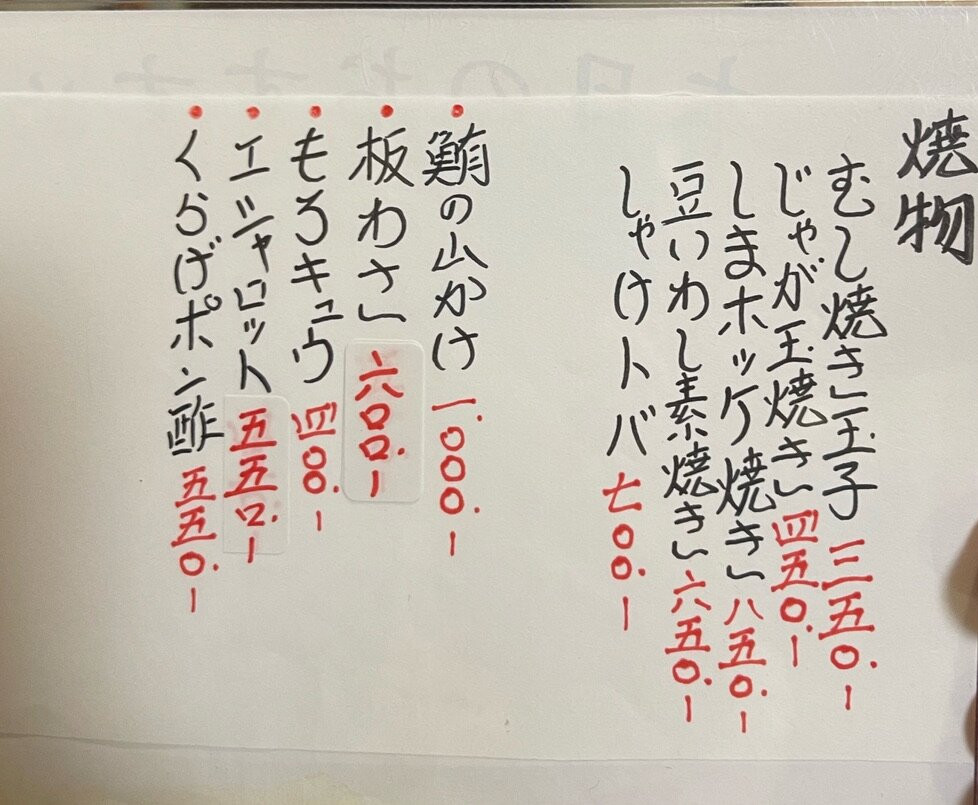 焼物
むし焼き玉子 三五〇.ー
じゃが玉焼き 四五〇.ー
しまホッケ焼き 八五〇.ー
豆いわし素焼き 六五〇.ー
しゃけトバ 七〇〇.ー
・鮪の山かけ 一.〇〇〇.ー
・板わさ 六〇〇.ー
・もろキュウ 四〇〇.ー
・エシャロット 五五〇.ー
・くらげポン酢 五五〇.ー